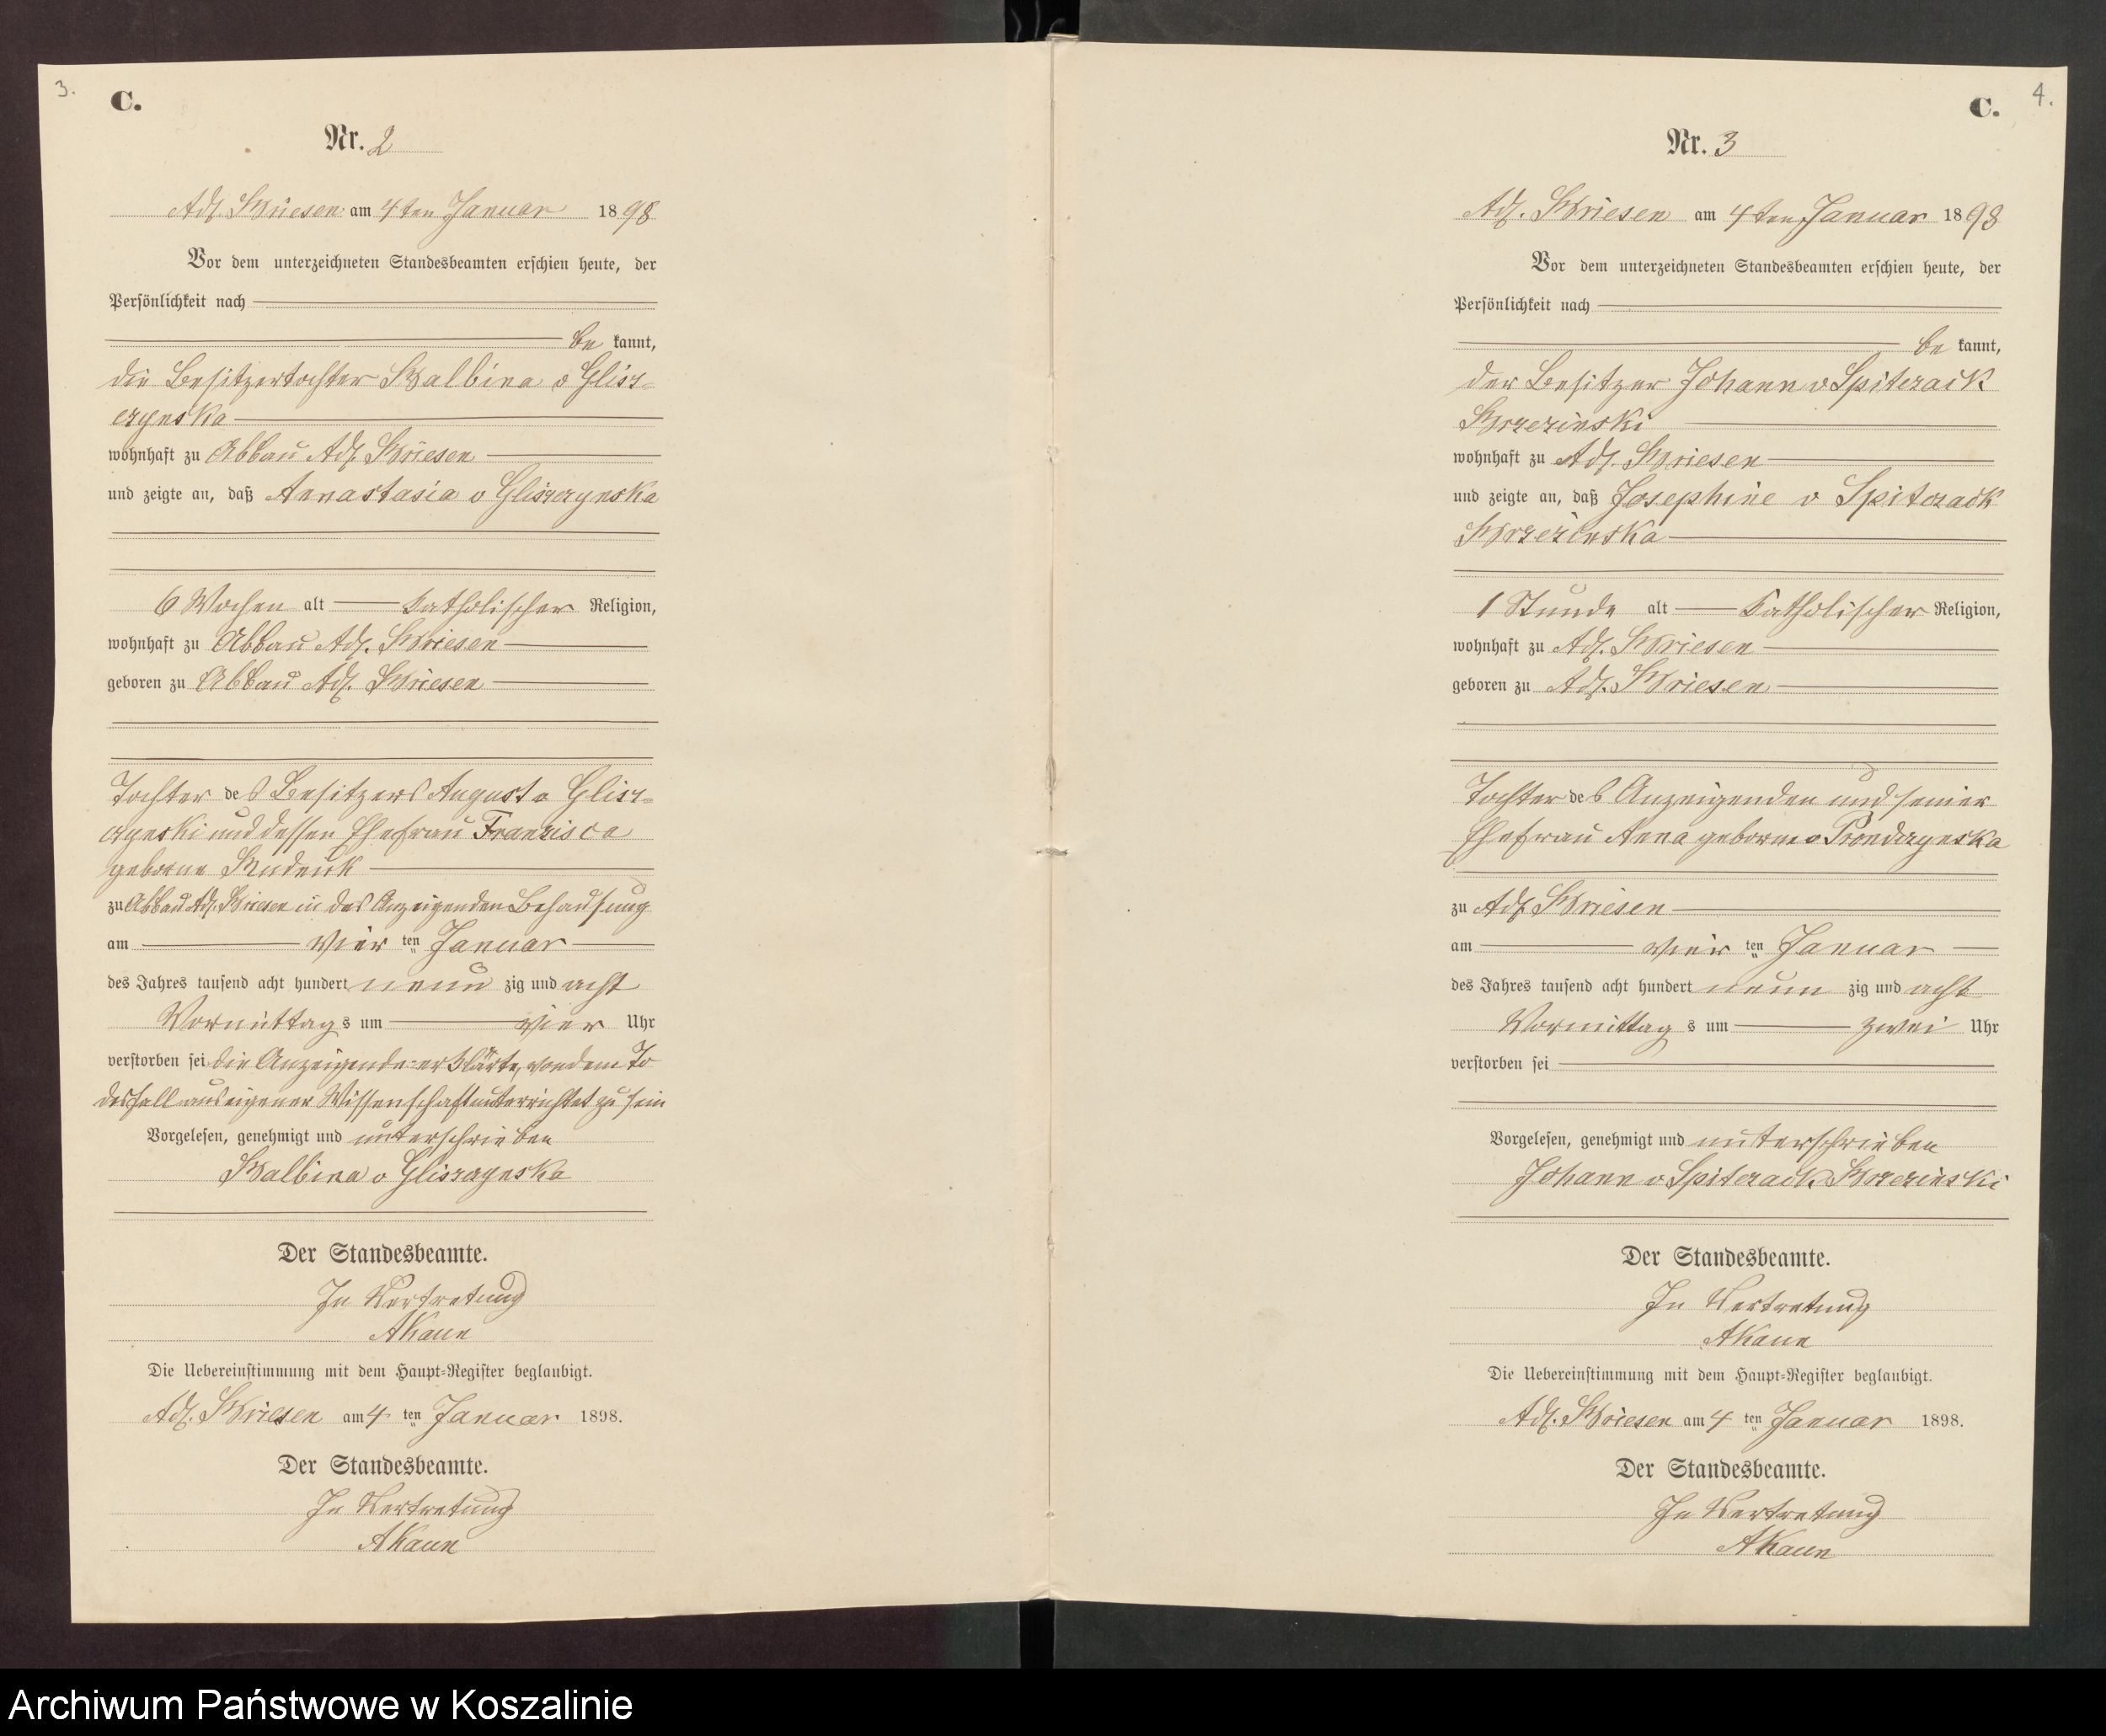 3.
C.
Nr. 2
Adl. Briesen am 4ten Januar 1898
Vor dem unterzeichneten Standesbeamten erschien heute, der
Persönlichkeit nach
be kannt,
die Besitzertochter Balbina v Glisz-
czynska
wohnhaft zu Abbau Adl. Briesen
und zeigte an, daß Annastasia v Gliszczynska
6 Wochen alt katholischer Religion,
wohnhaft zu Abbau Adl. Briesen
geboren zu Abbau Adl. Briesen
Tochter des Besitzers August v Glisz-
czynski und dessen Ehefrau Franzisca
geborne
zu Abbau Adl. Briesen in des Anzeigenden Behausung
am vier ten Januar
des Jahres tausend acht hundert neun zig und acht
Vormittag s um vier Uhr
verstorben sei die Anzeigende erklärte, von dem To
desfall aus eigener Wissenschaft unterrichtet zu sein
Vorgelesen, genehmigt und unterschrieben
Balbina v Gliszczynska
Der Standesbeamte.
In Vertretung
AKaun
Die Uebereinstimmung mit dem Haupt-Register beglaubigt.
Adl. Briesen am 4 ten Januar 1898.
Der Standesbeamte.
In Vertretung
AKaun
4.
C.
Nr. 3
Adl. Briesen am 4ten Januar 1898
Vor dem unterzeichneten Standesbeamten erschien heute, der
Persönlichkeit nach
be kannt,
der Besitzer Johann v Spiczack
Brzezinski
wohnhaft zu Adl. Briesen
und zeigte an, daß Josephine v Spiczack
Brzezinska
1 Stunde alt katholischer Religion,
wohnhaft zu Adl. Briesen
geboren zu Adl. Briesen
Tochter des Anzeigenden und seiner
Ehefrau Anna geborne v Prondzynska
zu Adl. Briesen
am vier ten Januar
des Jahres tausend acht hundert neun zig und acht
Vormittag s um zwei Uhr
verstorben sei
Vorgelesen, genehmigt und unterschrieben
Johann v Spiczack Brzezinski
Der Standesbeamte.
In Vertretung
AKaun
Die Uebereinstimmung mit dem Haupt-Register beglaubigt.
Adl. Briesen am 4 ten Januar 1898.
Der Standesbeamte.
In Vertretung
AKaun
Archiwum Państwowe w Koszalinie